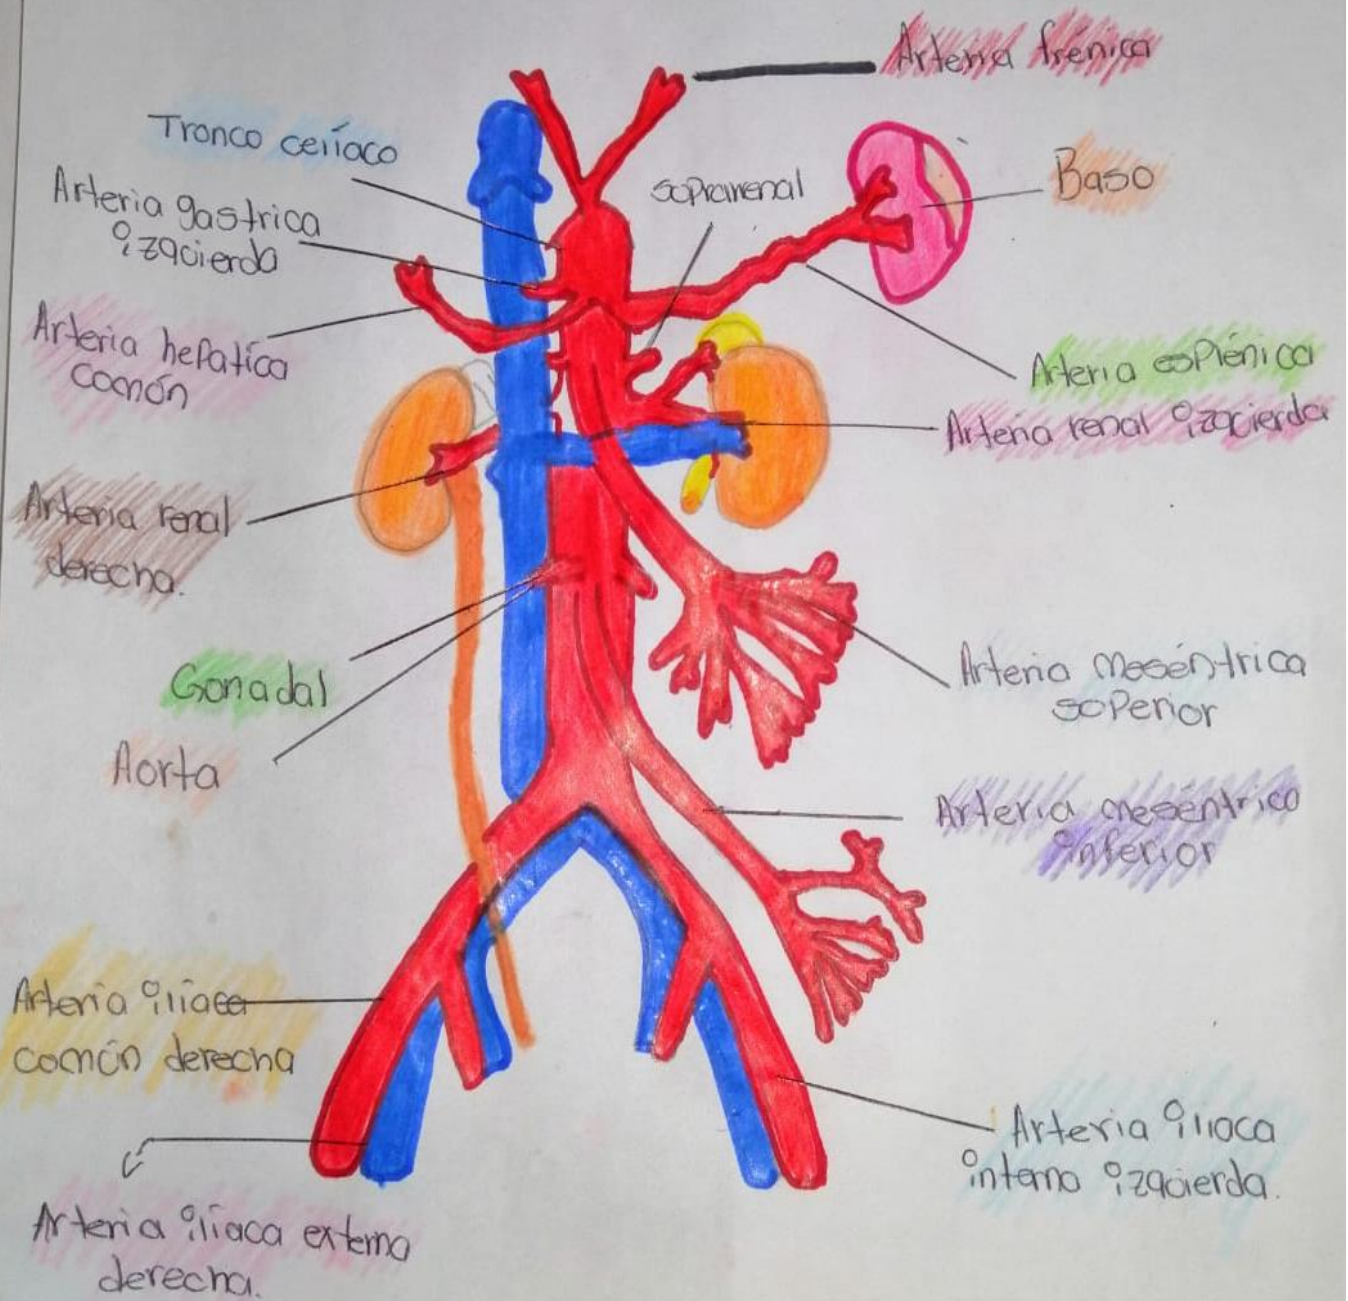 Arteria frénica
Tronco celíaco
Arteria gastrica
izquierda
suprarrenal
Baso
Arteria hepatíca
común
Arteria esplénica
Arteria renal izquierda
Arteria renal
derecha.
Gonadal
Aorta
Arteria meséntrica
superior
Arteria mesentrico
inferior
Arteria ilíaca
común derecha
Arteria iliaca
interno izquierda.
Arteria ilíaca externa
derecha.